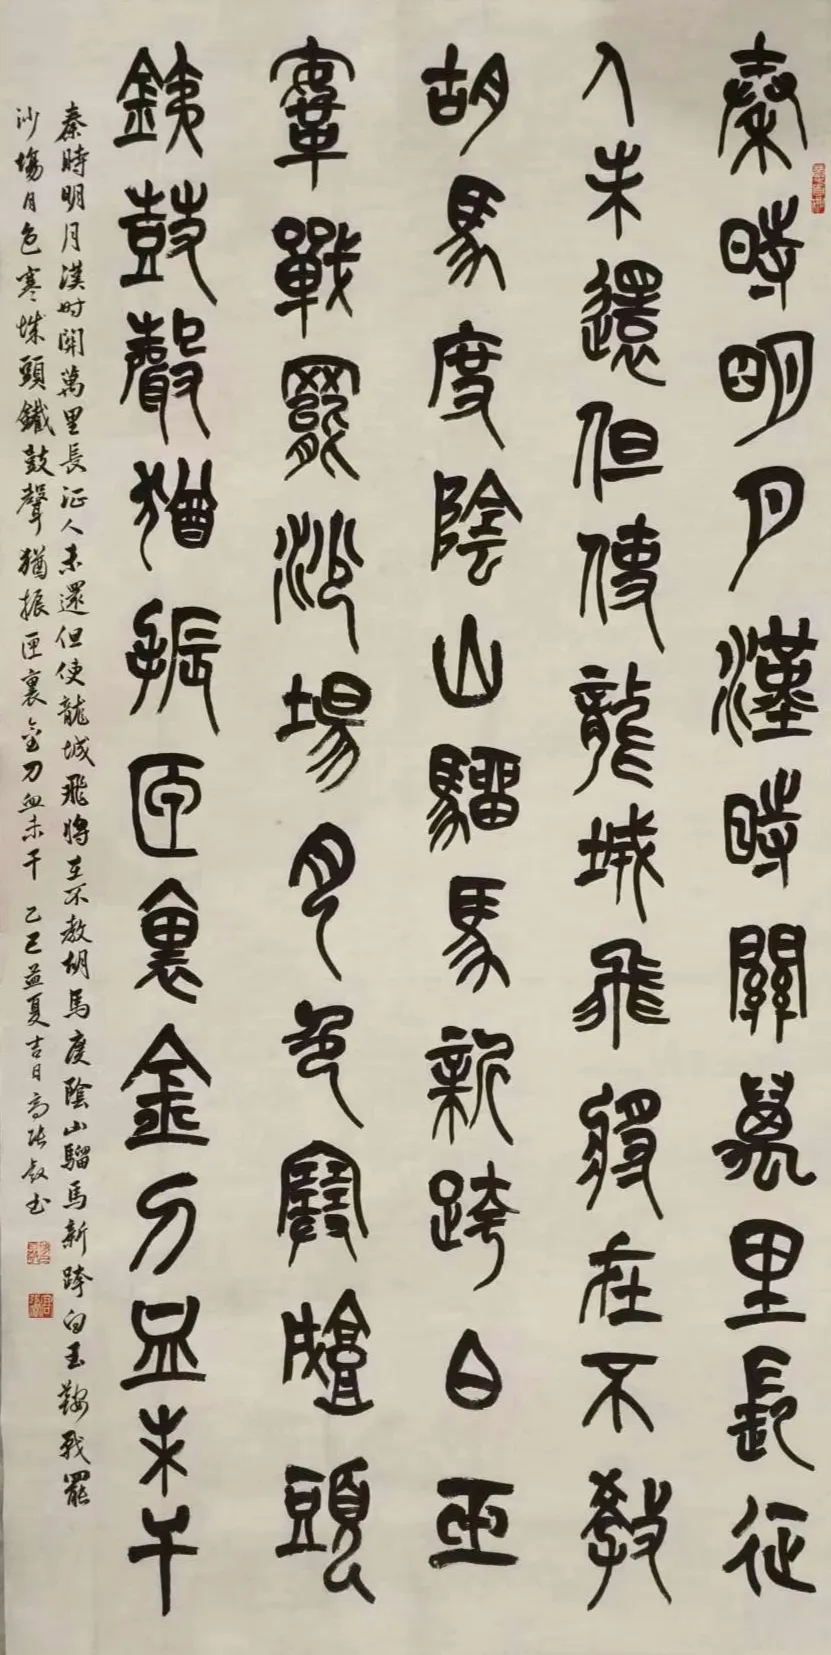 秦時明月漢時關萬里長征
人未還但使龍城飛將在不教
胡馬度陰山騮馬新跨白玉
鞍戰罷沙場月色寒城頭
鐵鼓聲猶振匣裏金刀血未干
秦時明月漢时關萬里長征人未還但使龍城飛將在不教胡馬度陰山騮馬新跨白玉鞍戰罷
沙場月色寒城頭鐵鼓聲猶振匣裏金刀血未干 乙巳孟夏吉日高 书